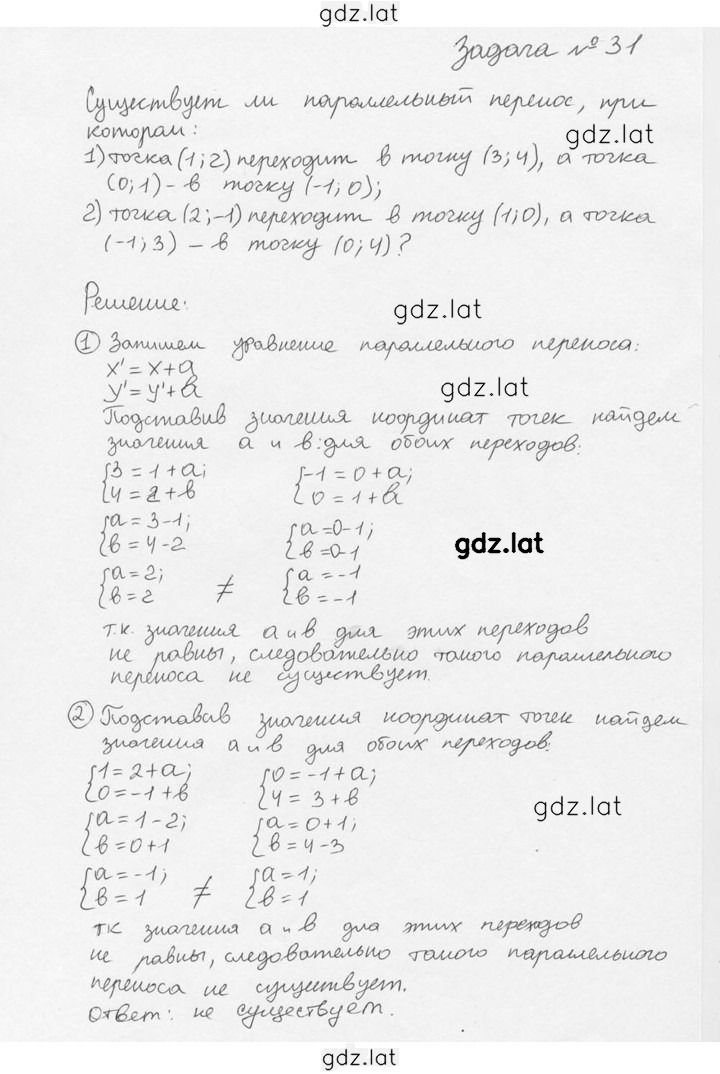 gdz.lat
Задача № 31
Существует ли параллельный перенос, при
котором:
gdz.lat
1) точка (1; 2) переходит в точку (3; 4), а точка
(0; 1) - в точку (-1; 0);
2) точка (2; -1) переходит в точку (1; 0), а точка
(-1; 3) - в точку (0; 4)?
Решение:
gdz.lat
① Запишем уравнение параллельного переноса:
x' = x + a
y' = y' + в
gdz.lat
Подставив значения координат точек найдем
значения а и в: для обоих переходов:
{3 = 1 + a; {-1 = 0 + a;
{4 = 2 + в {0 = 1 + в
{a = 3 - 1; {a = 0 - 1;
{в = 4 - 2 {в = 0 - 1
gdz.lat
{a = 2; ≠ {a = -1
{в = 2 {в = -1
т.к. значения а и в для этих переходов
не равны, следовательно такого параллельного
переноса не существует.
② Подставив значения координат точек найдем
значения а и в для обоих переходов:
{1 = 2 + a; {0 = -1 + a;
{0 = -1 + в {4 = 3 + в
gdz.lat
{a = 1 - 2; {a = 0 + 1;
{в = 0 + 1 {в = 4 - 3
{a = -1; ≠ {a = 1;
{в = 1 {в = 1
тк значения а и в для этих переходов
не равны, следовательно такого параллельного
переноса не существует.
Ответ: не существует.
gdz.lat